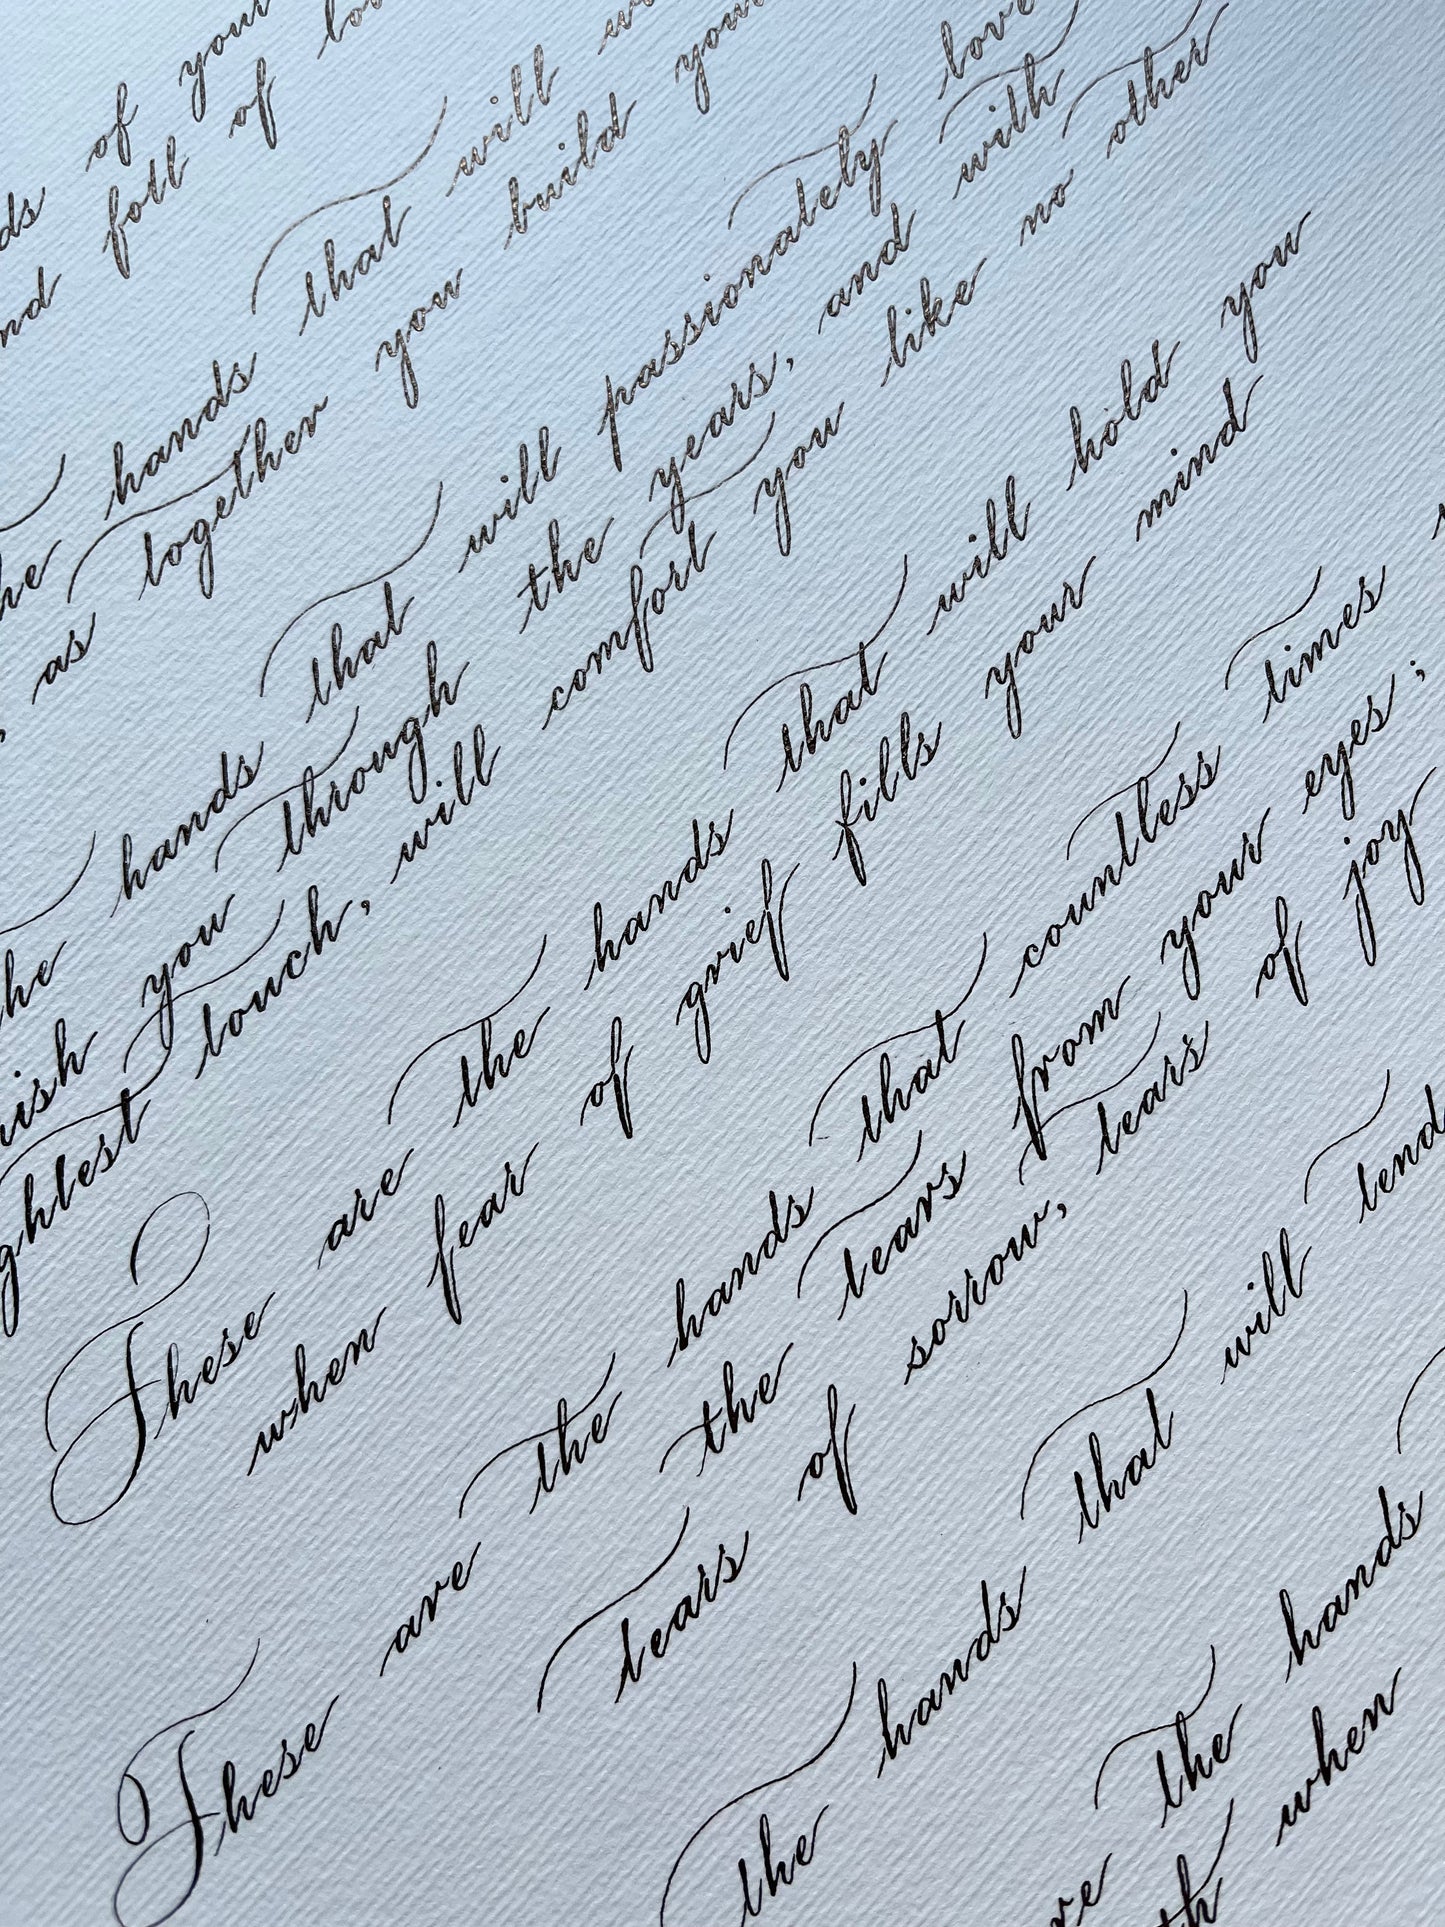 of your
full of
hands that will
as together you build
hands that will passionately love
you through the years, and with
touch, will comfort you like no other
These are the hands that will hold you
when fear of grief fills your mind
These are the hands that countless times
the tears from your eyes;
tears of sorrow, tears of joy
These the hands that will tend
the hands
when